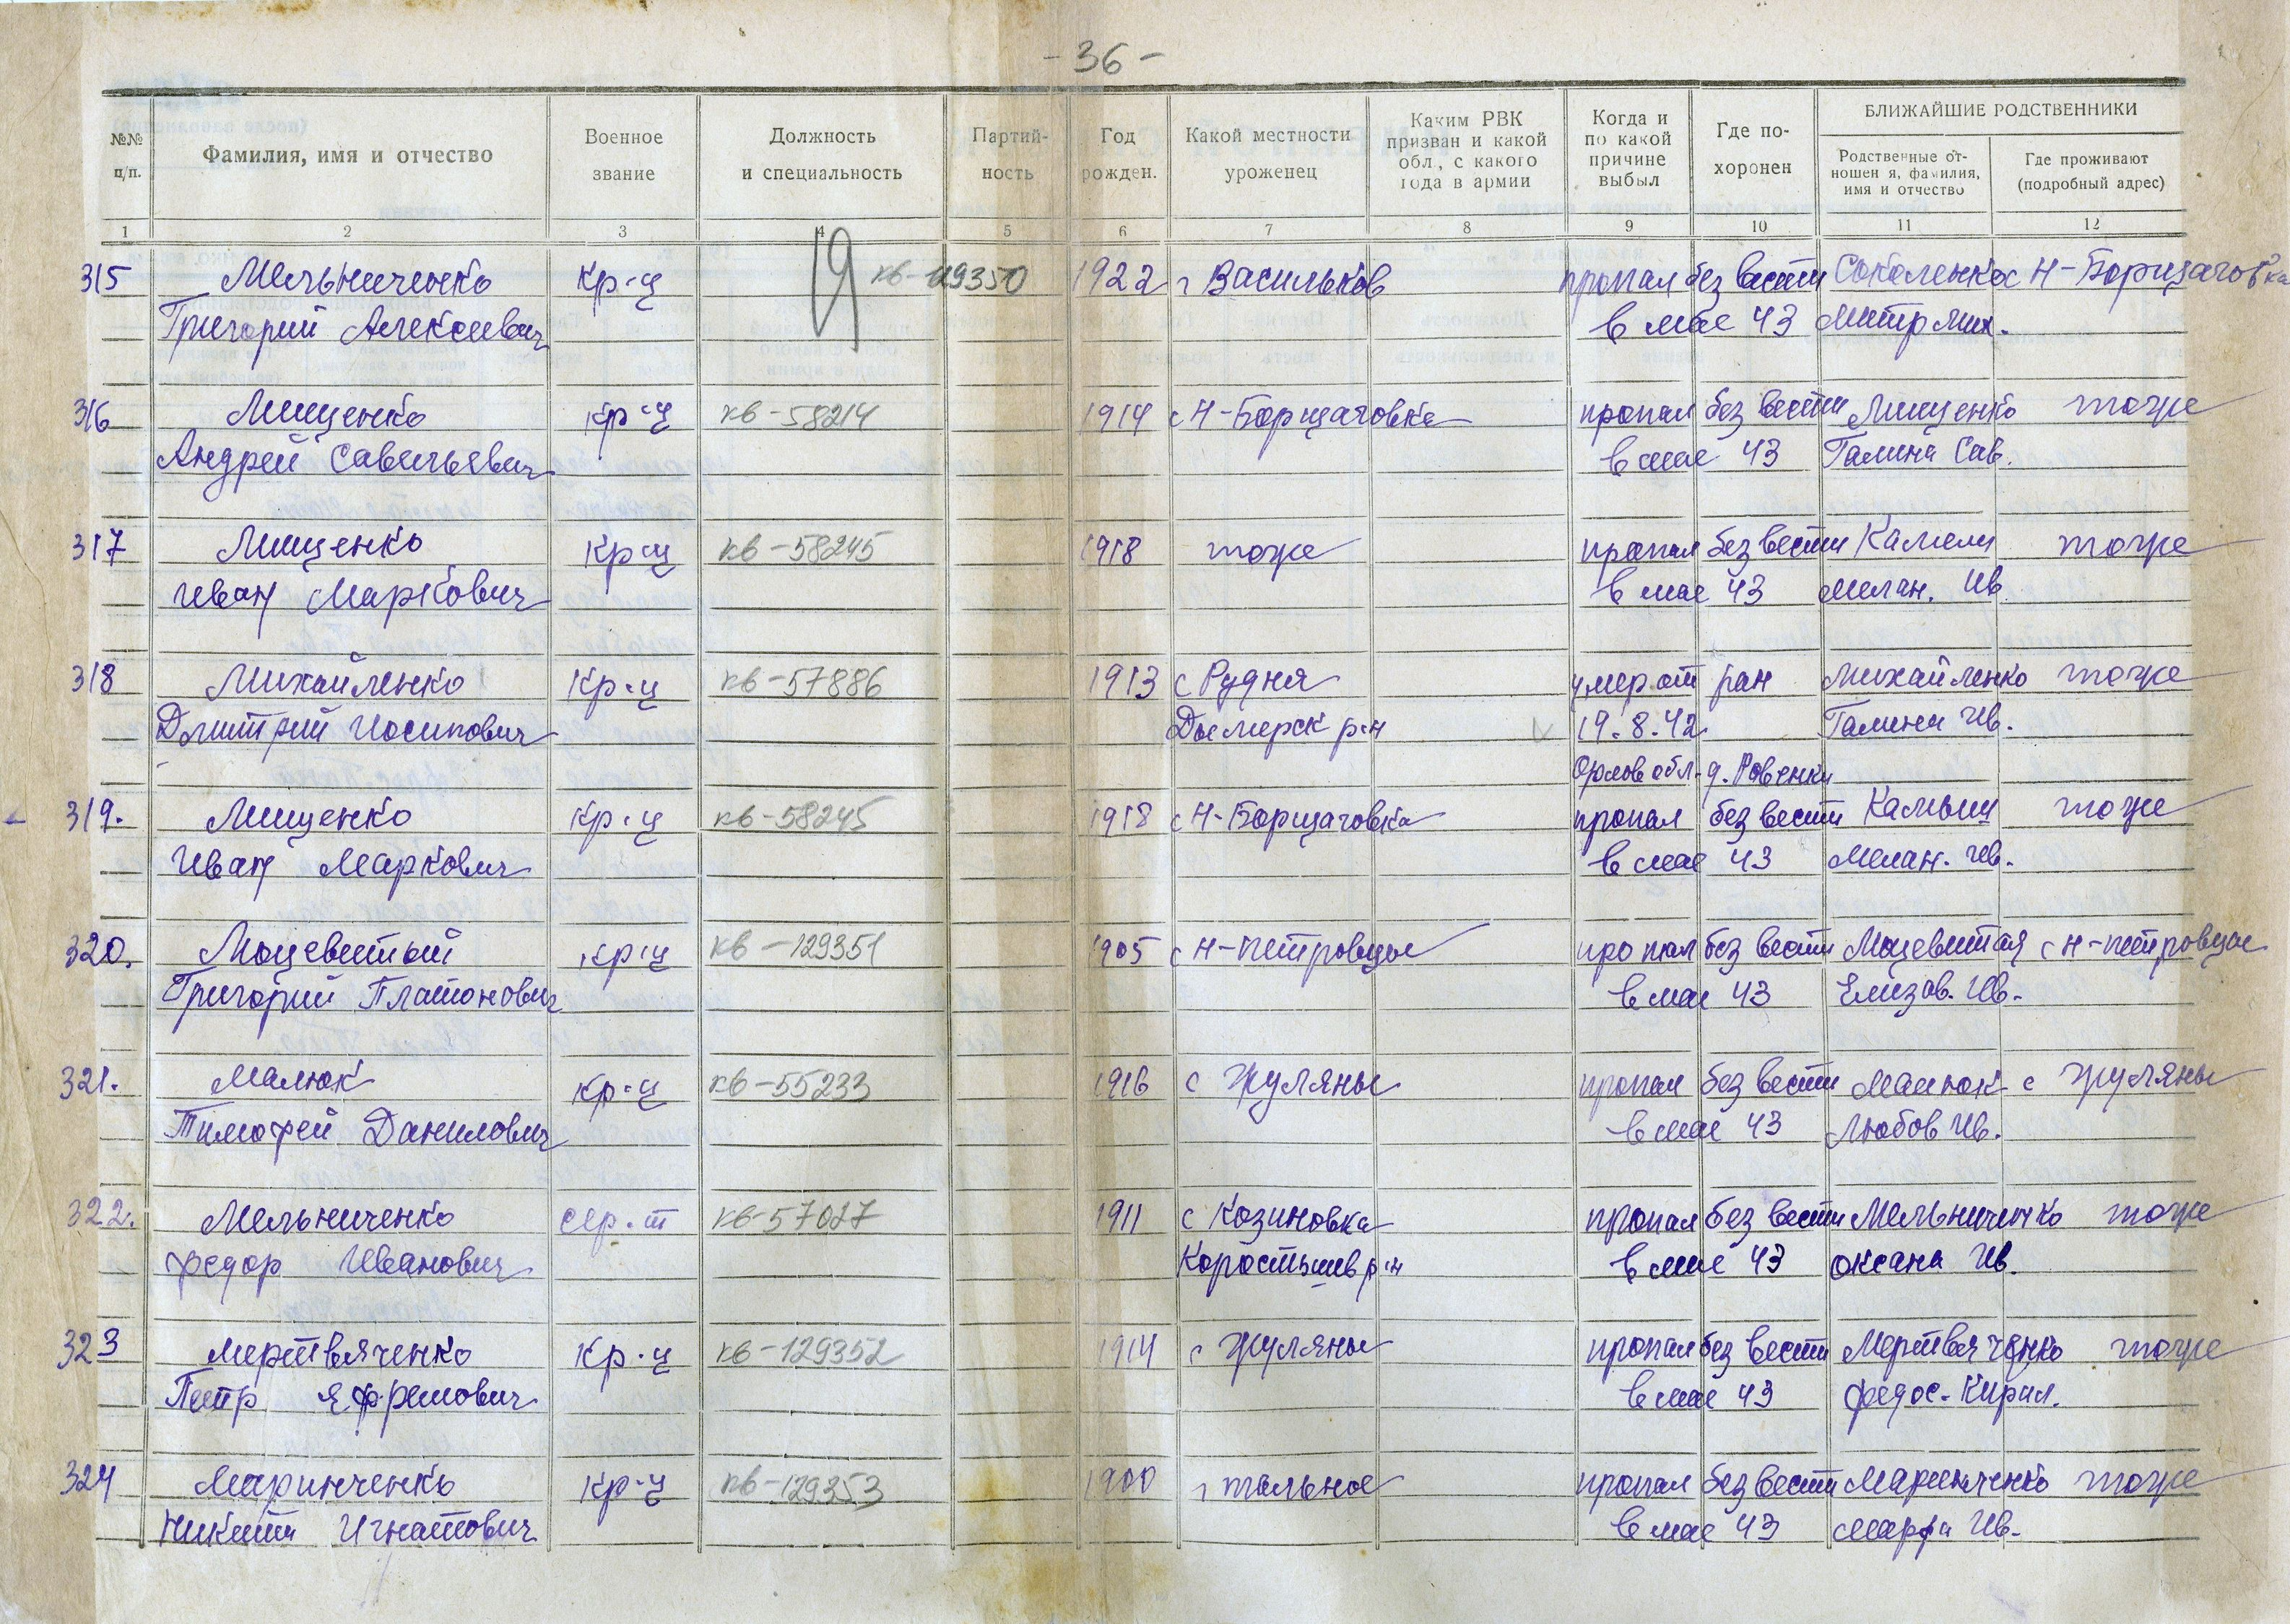 - 36 -
№№ п/п.
Фамилия, имя и отчество
Военное звание
Должность и специальность
Партий-ность
Год рожден.
Какой местности уроженец
Каким РВК призван и какой обл., с какого года в армии
Когда и по какой причине выбыл
Где по-хоронен
БЛИЖАЙШИЕ РОДСТВЕННИКИ
Родственные от-ношен я, фамилия, имя и отчество
Где проживают (подробный адрес)
1 2 3 4 5 6 7 8 9 10 11 12
315 Мельниченко кр-ц кв-129350 1922 г Васильков пропал без вести Соколенко с Н-Борщаговка
Григорий Алексеевич в мае 43 Митр Мих.
316 Мищенко кр-ц кв-58214 1914 с Н-Борщаговка пропал без вести Мищенко тоже
Андрей Савельевич в мае 43 Галина Сав.
317 Мищенко кр-ц кв-58245 1918 тоже пропал без вести тоже
Иван Маркович в мае 43 Мелан. Ив.
318 Михайленко кр-ц кв-57886 1913 с Рудня умер от ран Михайленко тоже
Дмитрий Иосипович Дымерск р-н 19.8.42 Галина Ив.
Орлов обл. д. Ровенки
319. Мищенко кр-ц кв-58245 1918 с Н-Борщаговка пропал без вести тоже
Иван Маркович в мае 43 Мелан. Ив.
320. Моцевитый кр-ц кв-129351 1905 с Н-петровцы пропал без вести Моцевитая с Н-петровцы
Григорий Платонович в мае 43 Елизав. Ив.
321. Малюк кр-ц кв-55233 1916 с Жуляны пропал без вести Малюк с Жуляны
Тимофей Данилович в мае 43 Любов Ив.
322. Мельниченко сер-т кв-57027 1911 с Козиновка пропал без вести Мельниченко тоже
Федор Иванович Коростышев р-н в мае 43 Оксана Ив.
323 Мертвяченко кр-ц кв-129352 1914 с Жуляны пропал без вести Мертвяченко тоже
Петр Ефремович в мае 43 Федос. Кирил.
324 Маринченко кр-ц кв-129353 1900 г тальное пропал без вести Маринченко тоже
Никита Игнатович в мае 43 Марфа Ив.